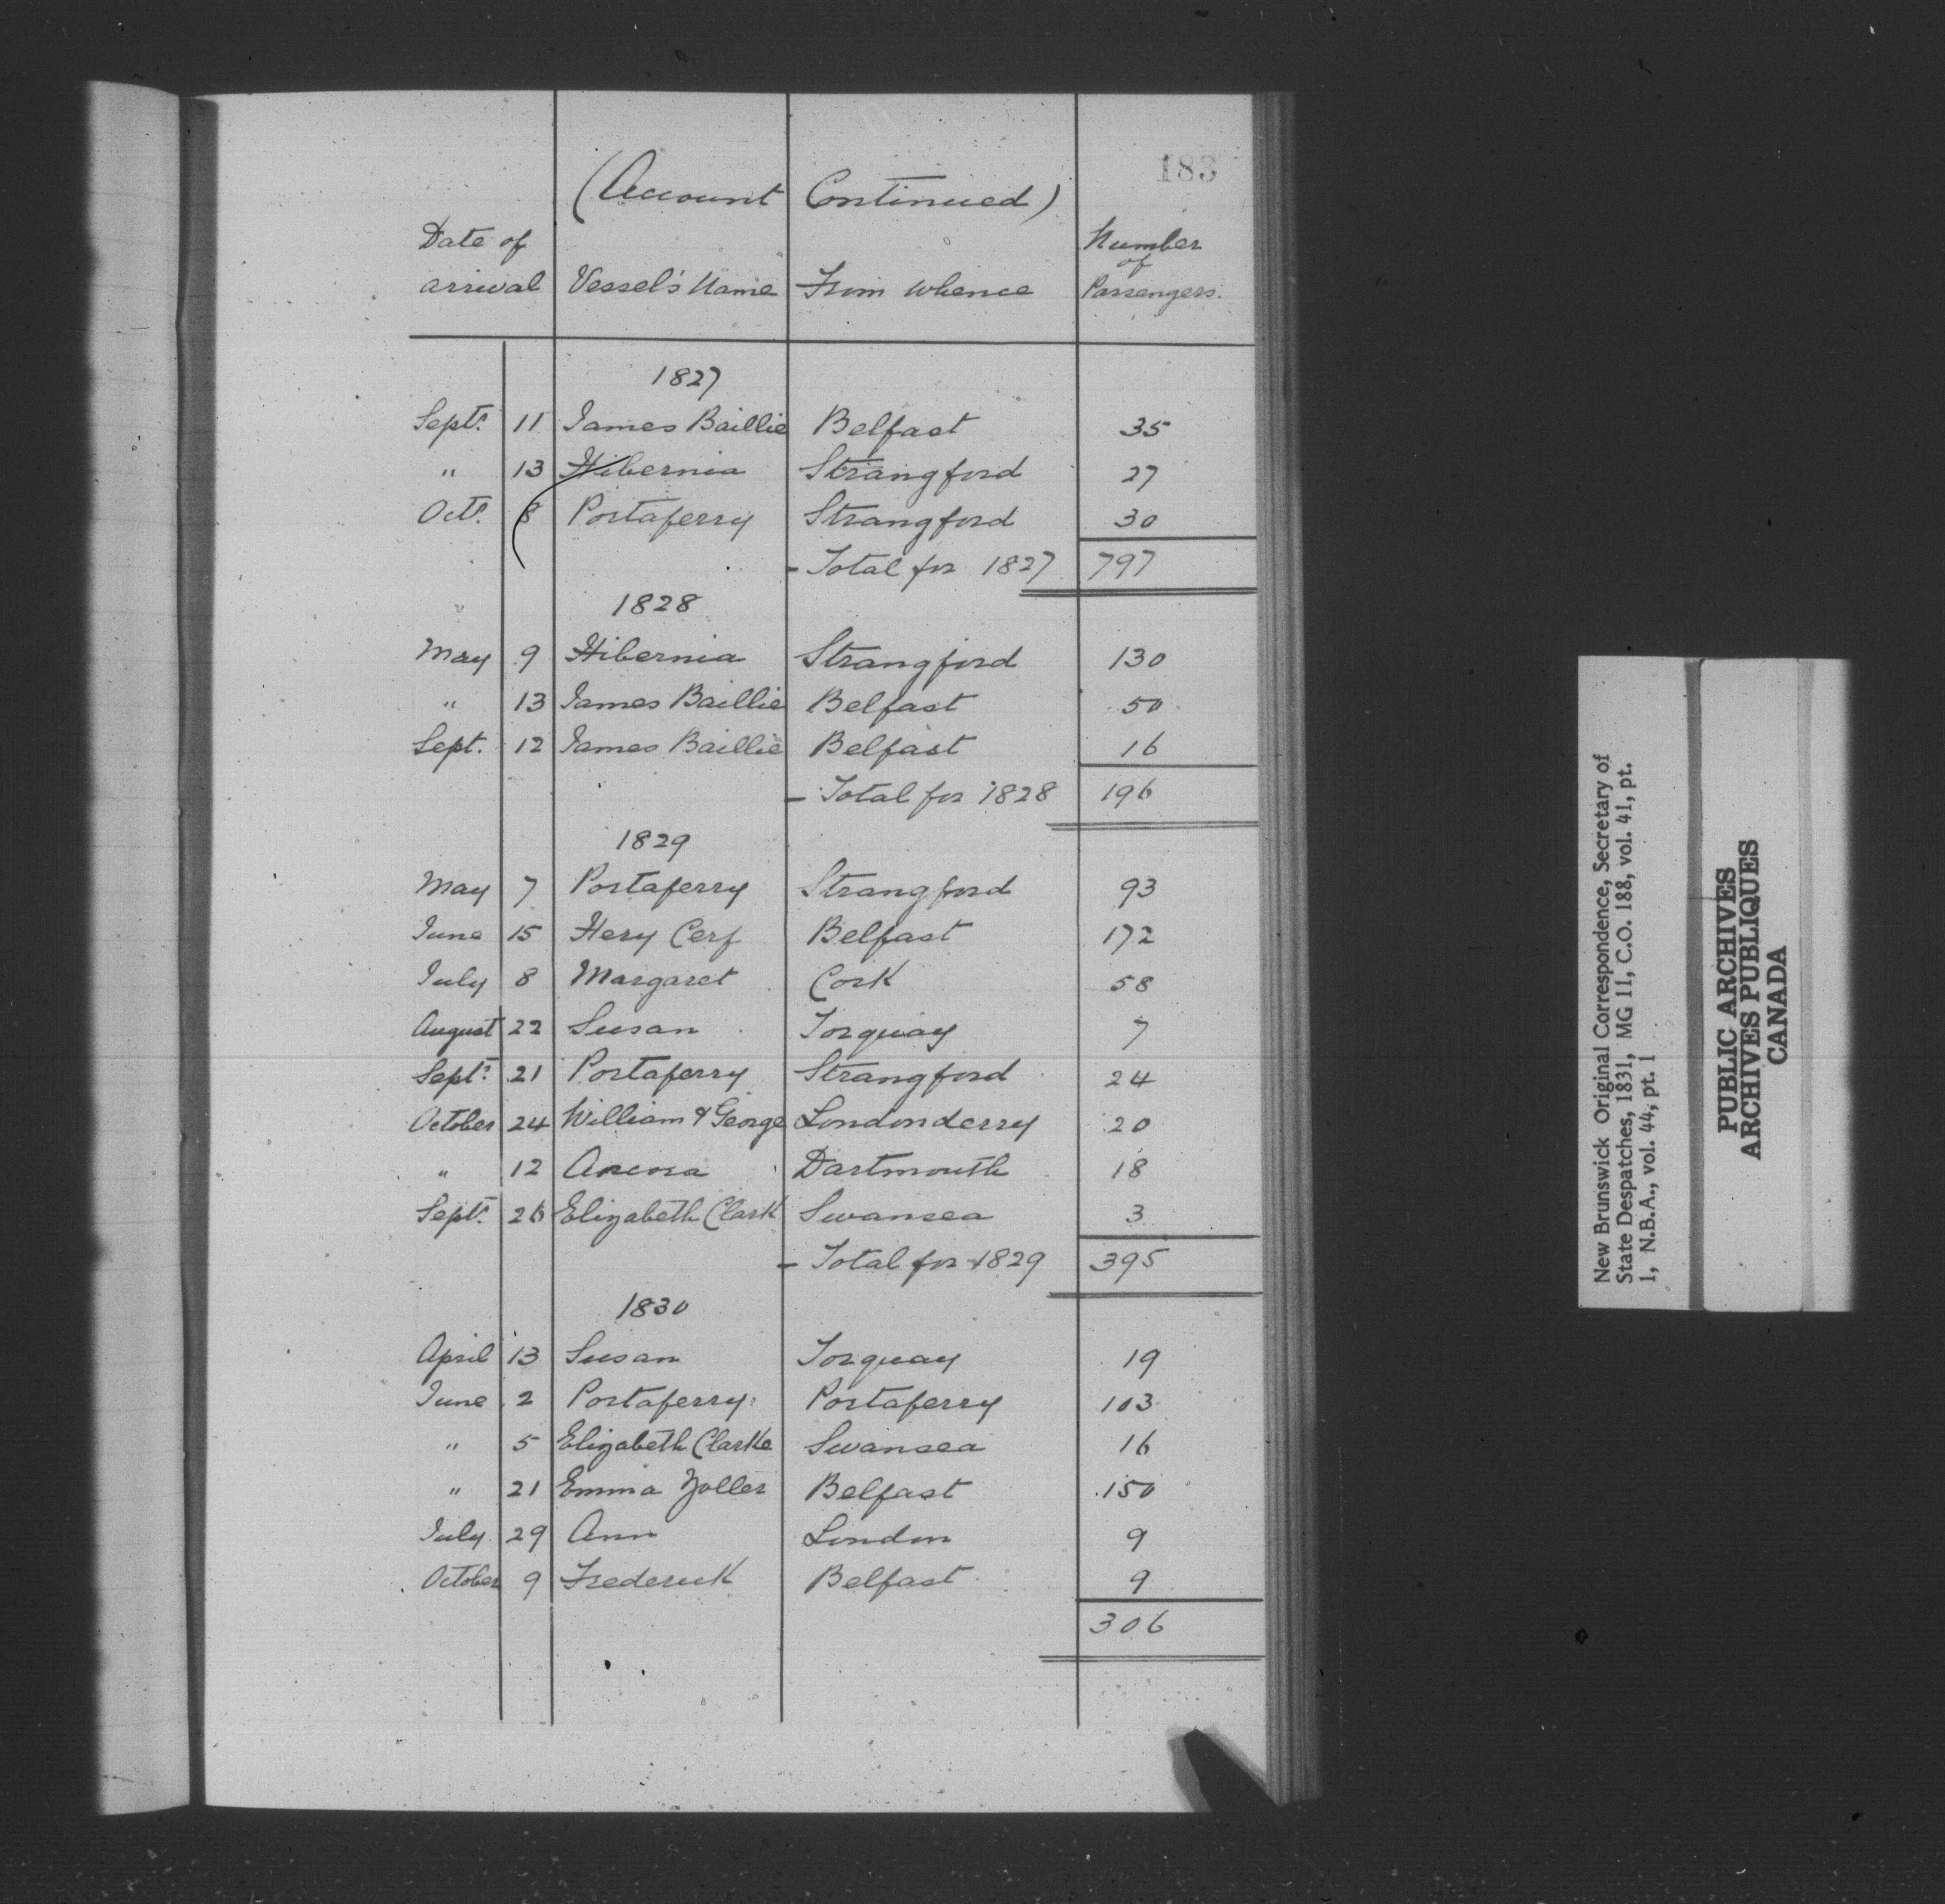 183
(Account Continued)
Date of arrival Vessel's Name From whence Number of Passengers.
1827
Sept. 11 James Baillie Belfast 35
" 13 Hibernia Strangford 27
Oct. 8 Portaferry Strangford 30
- Total for 1827 797
1828
May 9 Hibernia Strangford 130
" 13 James Baillie Belfast 50
Sept. 12 James Baillie Belfast 16
- Total for 1828 196
1829
May 7 Portaferry Strangford 93
June 15 Hery Cerf Belfast 172
July 8 Margaret Cork 58
August 22 Susan Torquay 7
Sept. 21 Portaferry Strangford 24
October 24 William & George Londonderry 20
" 12 Dartmouth 18
Sept. 26 Elizabeth Clark Swansea 3
- Total for 1829 395
1830
April 13 Susan Torquay 19
June 2 Portaferry Portaferry 103
" 5 Elizabeth Clarke Swansea 16
" 21 Emma Zoller Belfast 150
July 29 Ann London 9
October 9 Frederick Belfast 9
306
New Brunswick Original Correspondence, Secretary of
State Despatches, 1831, MG 11, C.O. 188, vol. 41, pt.
1, N.B.A., vol. 44, pt. 1
PUBLIC ARCHIVES
ARCHIVES PUBLIQUES
CANADA